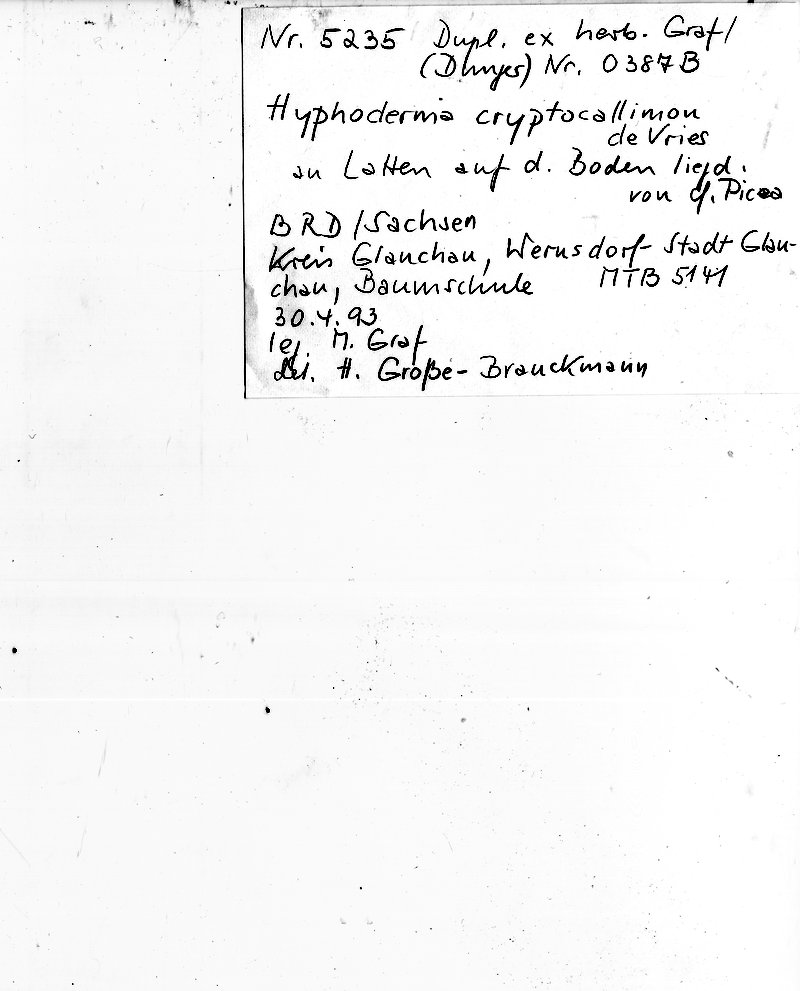 Nr. 5235 Dupl. ex herb. Graf/
(Dunger) Nr. 0387B
Hyphoderma cryptocallimon
de Vries
an Latten auf d. Boden liegd.
von cf. Picea
BRD/Sachsen
Kreis Glauchau, Wernsdorf- Stadt Glau-
chau, Baumschule MTB 5141
30.4.93
leg. M. Graf
det. H. Große-Brauckmann